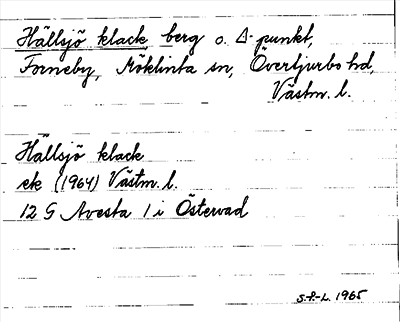 Hällsjö klack berg o. Δ-punkt,
Forneby, Möklinta sn, Övertjurbo hd,
Västm. l.
Hällsjö klack
ek (1964) Västm. l.
12 G Avesta 1 i Östervad
S.-P.-L. 1965